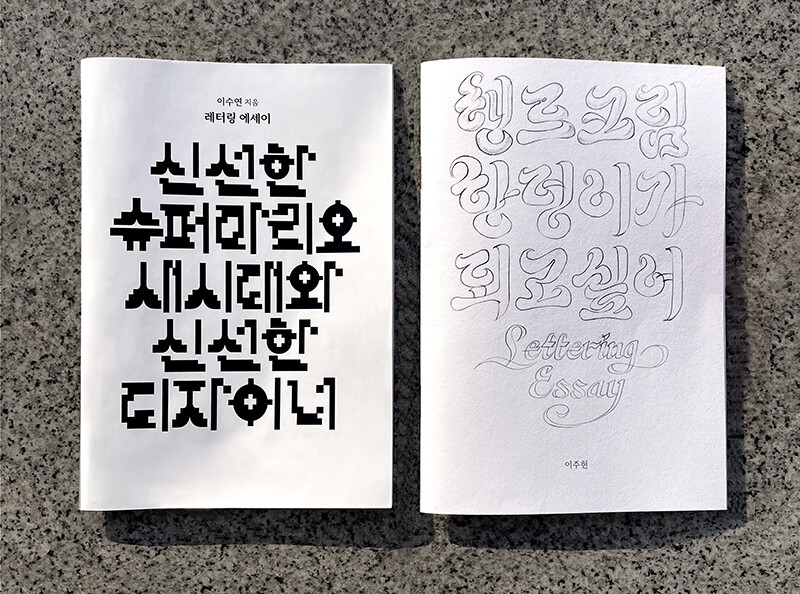 이수연 지음
레터링 에세이
신선한
슈퍼마리오
새시대와
신선한
디자이너
핸드크림
되고싶어
Lettering
Essay
이주현